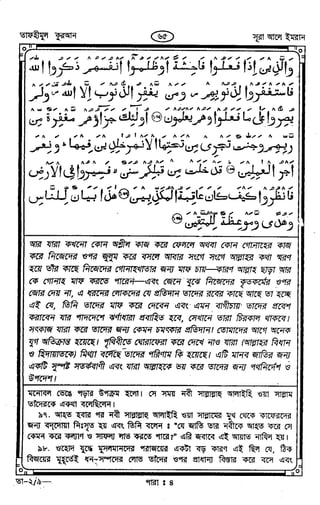 তাফহীমুল কুরআন
৬৫
সূরা আলে ইমরান
وَالَّذِينَ إِذَا فَعَلُوا فَاحِشَةً أَوْ ظَلَمُوا أَنْفُسَهُمْ ذَكَرُوا اللَّهَ
فَاسْتَغْفَرُوا لِذُنُوبِهِمْ وَمَنْ يَغْفِرُ الذُّنُوبَ إِلَّا اللَّهُ وَلَمْ
يُصِرُّوا عَلَى مَا فَعَلُوا وَهُمْ يَعْلَمُونَ أُولَئِكَ جَزَاؤُهُمْ مَغْفِرَةٌ مِنْ
رَبِّهِمْ وَجَنَّتٌ تَجْرِي مِنْ تَحْتِهَا الْأَنْهَرُ خَلِدِينَ فِيهَا وَنِعْمَ
أَجْرُ الْعَمِلِينَ قَدْ خَلَتْ مِنْ قَبْلِكُمْ سُنَنٌ فَسِيرُوا فِي الْأَرْضِ
فَانْظُرُوا كَيْفَ كَانَ عَاقِبَةُ الْمُكَذِّبِينَ هَذَا بَيَانٌ لِلنَّاسِ
وَهُدًى وَمَوْعِظَةٌ لِلْمُتَّقِينَ
আর যারা কখনো কোন অশ্লীল কাজ করে ফেললে অথবা কোন গোনাহের কাজ
করে নিজেদের ওপর জুলুম করে বসলে আবার সংগে সংগে আল্লাহর কথা স্মরণ
হয়ে তাঁর কাছে নিজেদের গোনাহখাতার জন্য মাফ চায়—কারণ আল্লাহ ছাড়া আর
কে গোনাহ মাফ করতে পারেন—এবং জেনে বুঝে নিজেদের কৃতকর্মের ওপর
জোর দেয় না, এ ধরনের লোকদের যে প্রতিদান তাদের রবের কাছে আছে তা হচ্ছে
এই যে, তিনি তাদের মাফ করে দেবেন এবং এমন বাগীচায় তাদের প্রবেশ
করাবেন যার পাদদেশে ঝর্ণাধারা প্রবাহিত হবে, সেখানে তারা চিরকাল থাকবে।
সৎকাজ যারা করে তাদের জন্য কেমন চমৎকার প্রতিদান। তোমাদের আগে অনেক
যুগ অতিক্রান্ত হয়েছে। পৃথিবীতে ঘোরাফেরা করে দেখে নাও যারা (আল্লাহর বিধান
ও হিদায়াতকে) মিথ্যা বলেছে তাদের পরিণাম কি হয়েছে। এটি মানব জাতির জন্য
একটি সুস্পষ্ট সতর্কবাণী এবং যারা আল্লাহকে ভয় করে তাদের জন্য পথনির্দেশ ও
উপদেশ।
মনোবল ভেঙে পড়ার উপক্রম হলো। সে সময় নবী সাল্লাল্লাহু আলাইহি ওয়া সাল্লাম
তাদেরকে একথা বলেছিলেন।
৯৭. আহত হবার পর নবী সাল্লাল্লাহু আলাইহি ওয়া সাল্লামের মুখ থেকে কাফেরদের
জন্য বদ্‌দোয়া নিঃসৃত হয় এবং তিনি বলেন : "যে জাতি তার নবীকে আহত করে সে
কেমন করে কল্যাণ ও সাফল্য লাভ করতে পারে।" এরি জবাবে এই আয়াত নাযিল হয়।
৯৮. ওহোদ যুদ্ধে মুসলমানদের পরাজয়ের একটা বড় কারণ এই ছিল যে, ঠিক
বিজয়ের মুহূর্তেই ধন-সম্পদের লোভ তাদের ওপর প্রাধান্য বিস্তার করে বসে এবং
তা-২/৯—
পারা : ৪